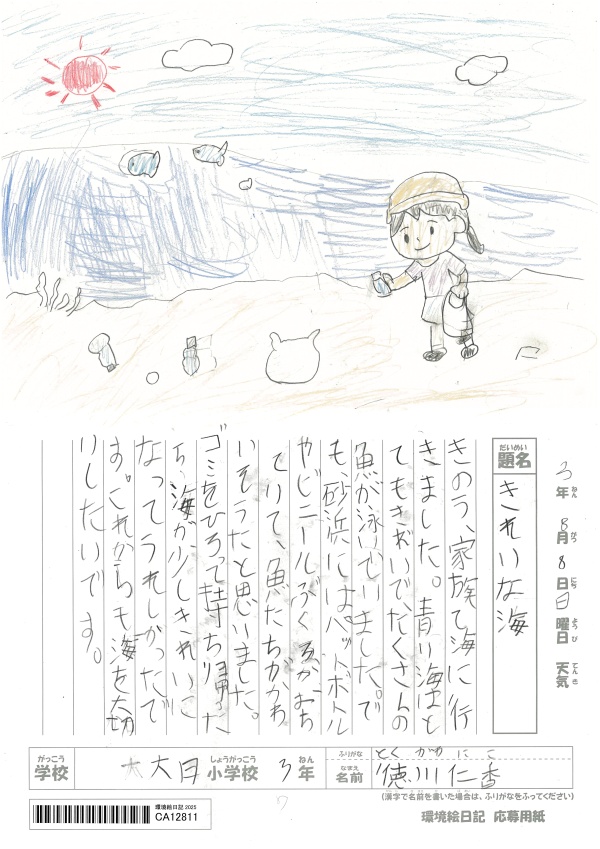 3年 8月 8日 日曜日 天気
ねん がつ にち ようび てんき
だいめい
題名 きれいな海
きのう、家族で海に行
きました。青い海はと
てもきれいで、たくさんの
魚が泳いでいました。で
も、砂浜にはペットボトル
やビニールぶくろが、おち
ていて、魚たちがかわ
いそうだと思いました。
ゴミをひろって持ち帰った
ら、海が少しきれいに
なってうれしかったで
す。これからも海を大切
にしたいです。
がっこう しょうがっこう ねん
学校 大日 小学校 3年
ふりがな とくがわ にこ
なまえ
名前 徳川仁香
(漢字で名前を書いた場合は、ふりがなをふってください)
環境絵日記 2025
CA12811
環境絵日記 応募用紙